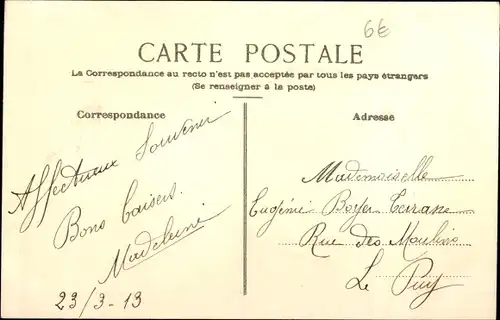 6€
CARTE POSTALE
La Correspondance au recto n'est pas acceptée par tous les pays étrangers
(Se renseigner à la poste)
Correspondance
Adresse
Affectueux Souvenir
Bons baisers.
Madeleine
23/3-13
Mademoiselle
Eugénie Boyer Terrasse
Rue des Moulins
Le Puy